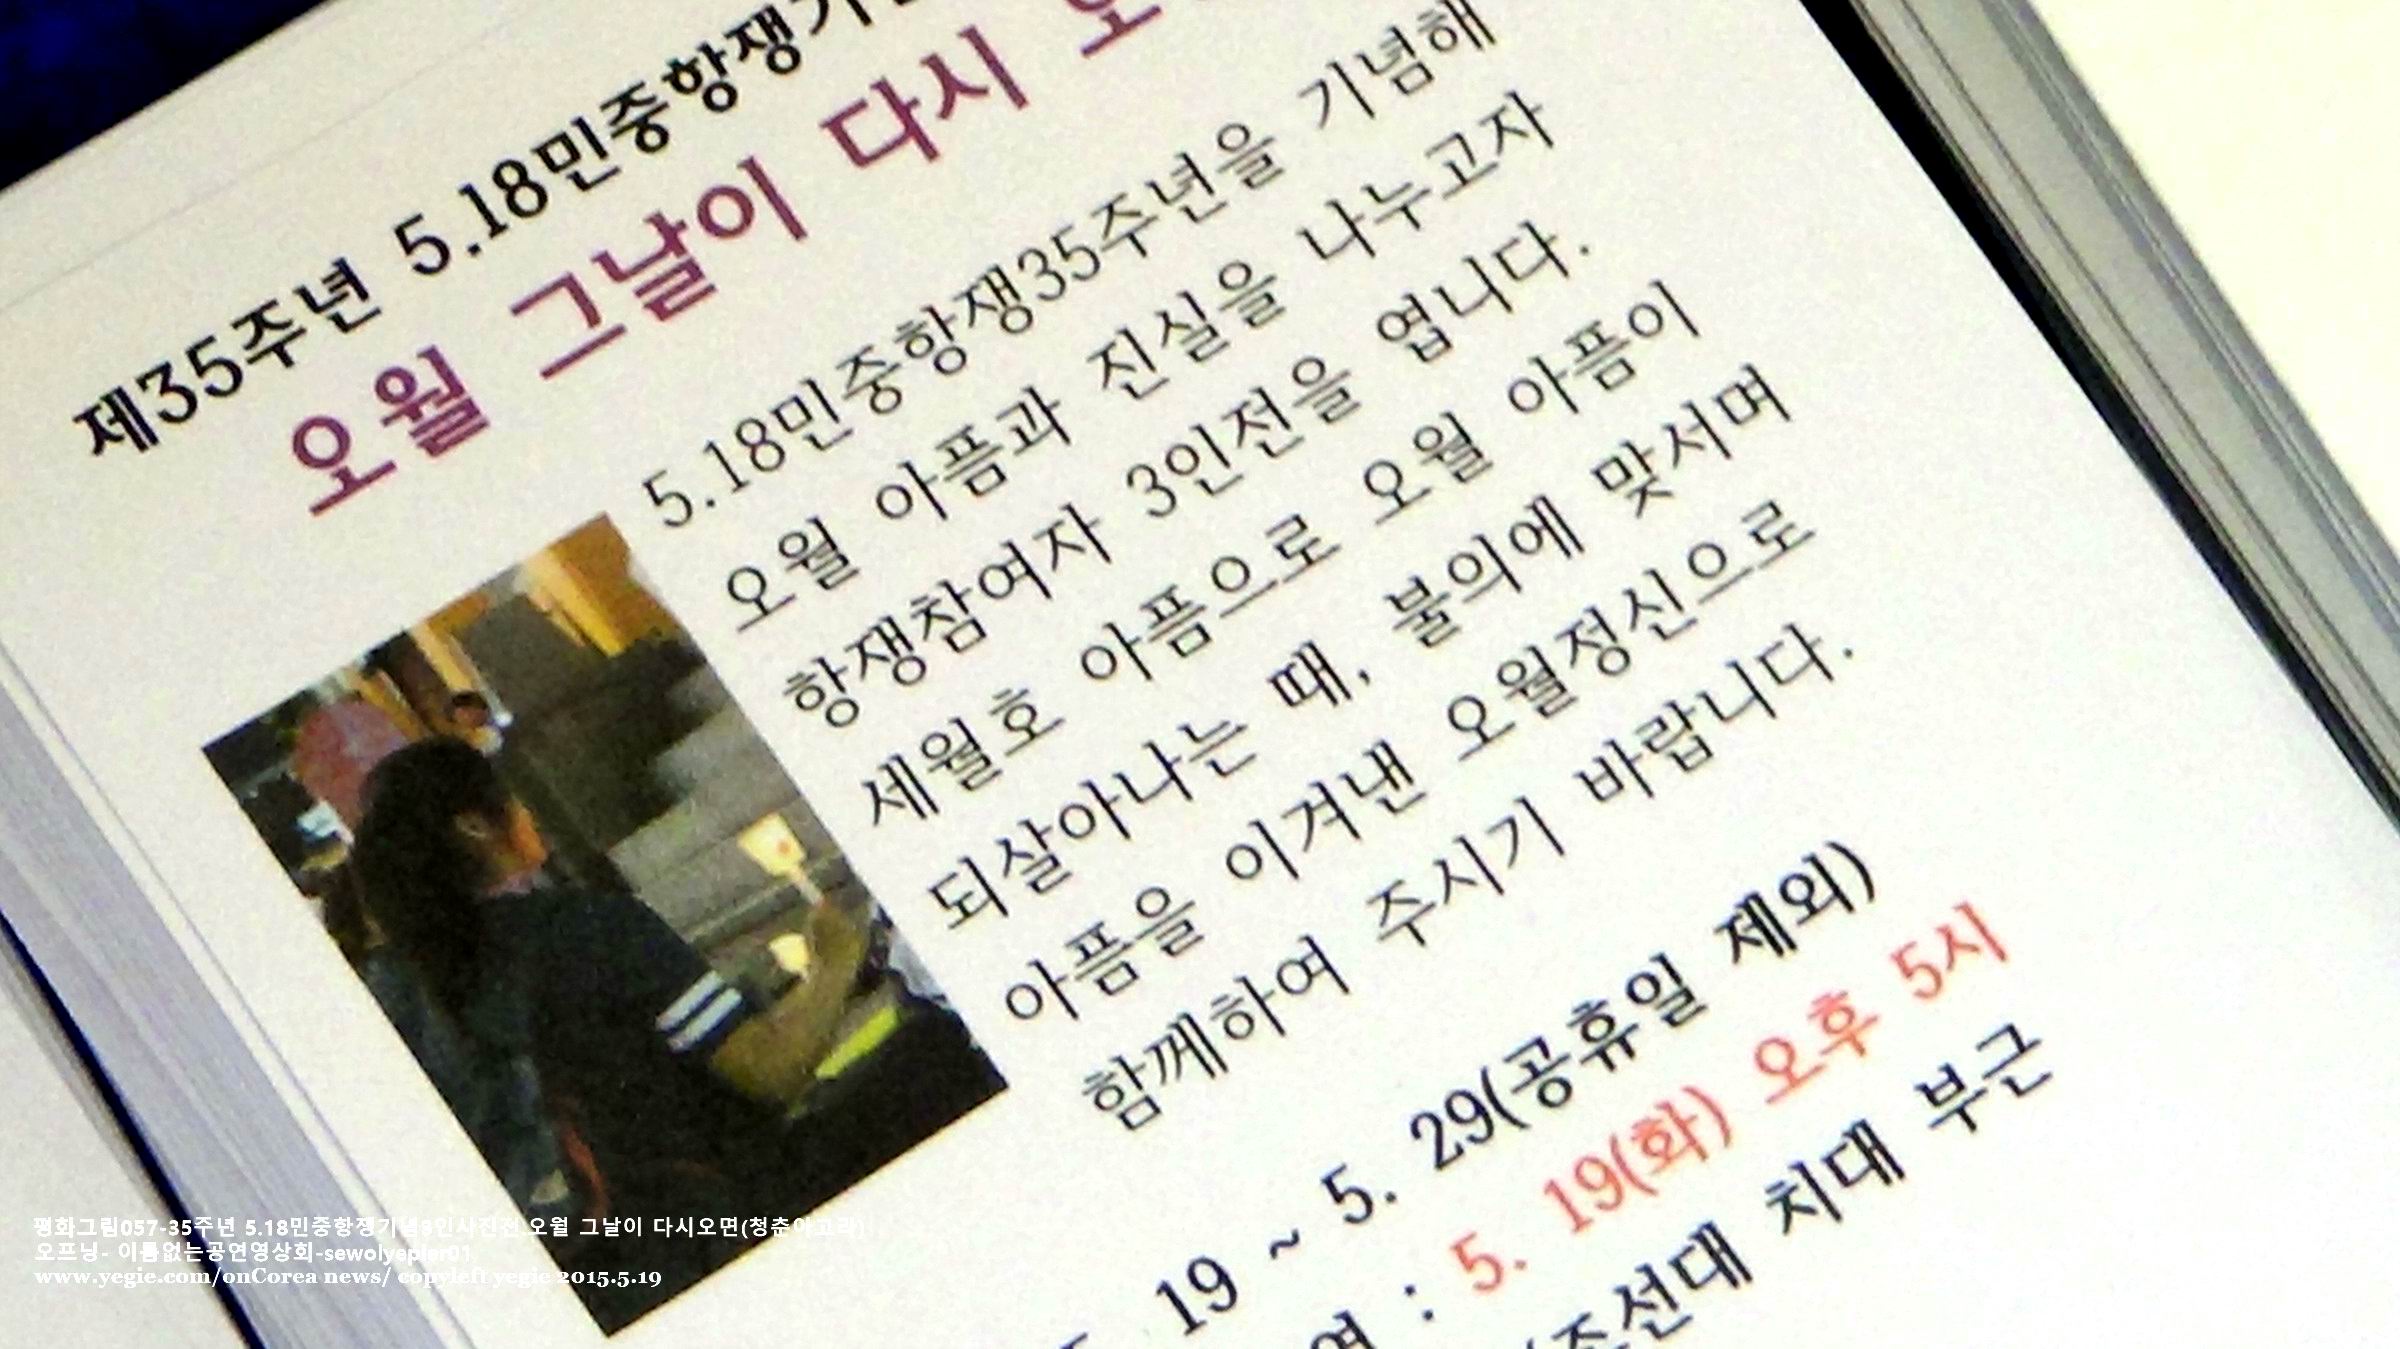 제35주년 5.18민중항쟁기
오월 그날이 다시
5.18민중항쟁35주년을 기념해
오월 아픔과 진실을 나누고자
항쟁참여자 3인전을 엽니다.
세월호 아픔으로 오월 아픔이
되살아나는 때, 불의에 맞서며
아픔을 이겨낸 오월정신으로
함께하여 주시기 바랍니다.
19 ~ 5. 29(공휴일 제외)
: 5. 19(화) 오후 5시
(조선대 치대 부근
평화그림057-35주년 5.18민중항쟁기념3인사진전 오월 그날이 다시오면(청춘아고라)
오프닝- 이름없는공연영상회-sewolyepier01
www.yegie.com/onCorea news/ copyleft yegie 2015.5.19